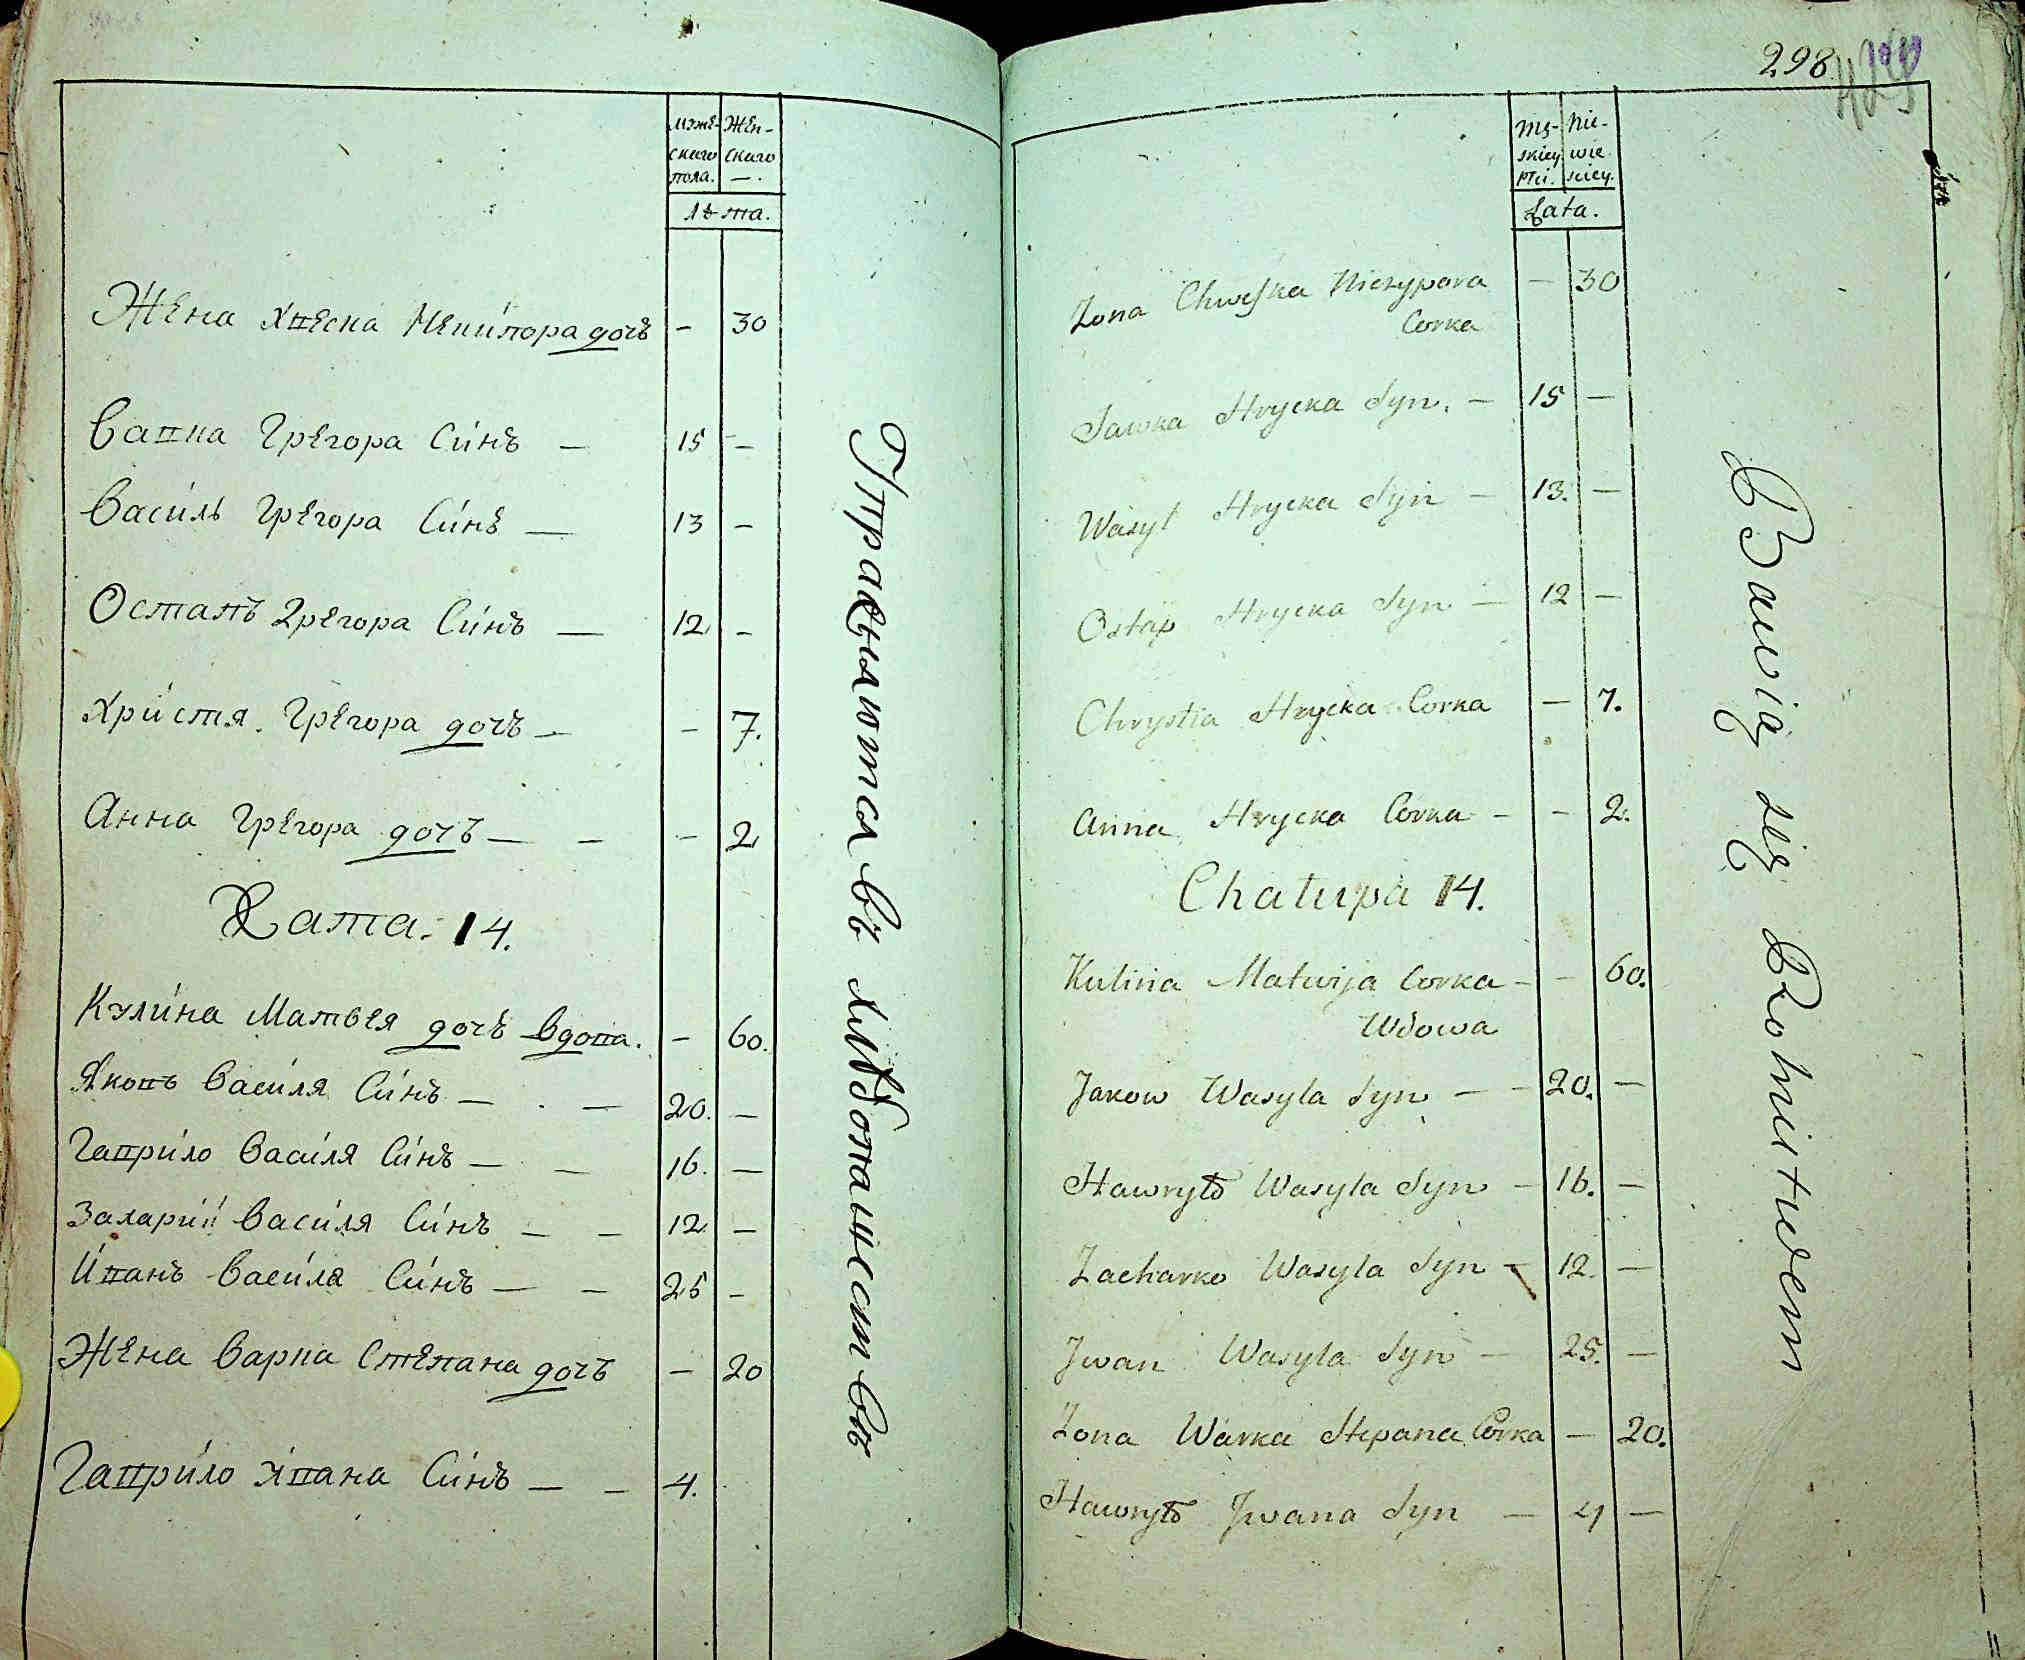 муже- жен-
скаго скаго
пола. — .
лѣта.
Жена Хвеска Нечипора дочъ - 30
Савка Грегора Синъ — 15 —
Василь Грегора Синъ — 13 -
Остапъ Грегора Синъ — 12 -
Христя. Грегора дочъ — - 7.
Анна Грегора дочъ — — - 2
Хата. 14.
Кулина Матвея дочъ вдова. - 60.
Яковъ Василя Синъ — . — 20. —
Гаврило Василя Синъ — — 16. —
Захарий Василя Синъ — — 12 —
Иванъ Василя Синъ — — 25 -
Жена Варка Степана дочъ - 20
Гаврило Ивана Синъ — — 4.
Упражняются въ хлѣбопашествѣ
298
Mę- Nie-
skiey wie
płci. sciey.
Lata.
Zona Chweska Niczypora — 30
Corka
Sawka Hrycka Syn. — 15 —
Wasyl Hrycka Syn — 13. —
Ostap Hrycka Syn — 12 —
Chrystia Hrycka Corka — 7.
Anna Hrycka Corka — - 2.
Chatupa 14.
Kulina Matwija Corka - - 60.
Wdowa
Jakow Wasyla Syn — - 20. —
Hawryło Wasyla Syn — 16. —
Zacharko Wasyla Syn - 12. —
Jwan Wasyla Syn — 25. —
Zona Warka Stepana Corka — 20.
Hawryło Jwana Syn — 4 —
Bawią się Rolnictwem